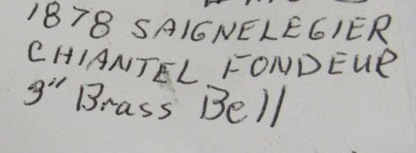 1878 SAIGNELEGIER
CHIANTEL FONDEUR
3" Brass Bell